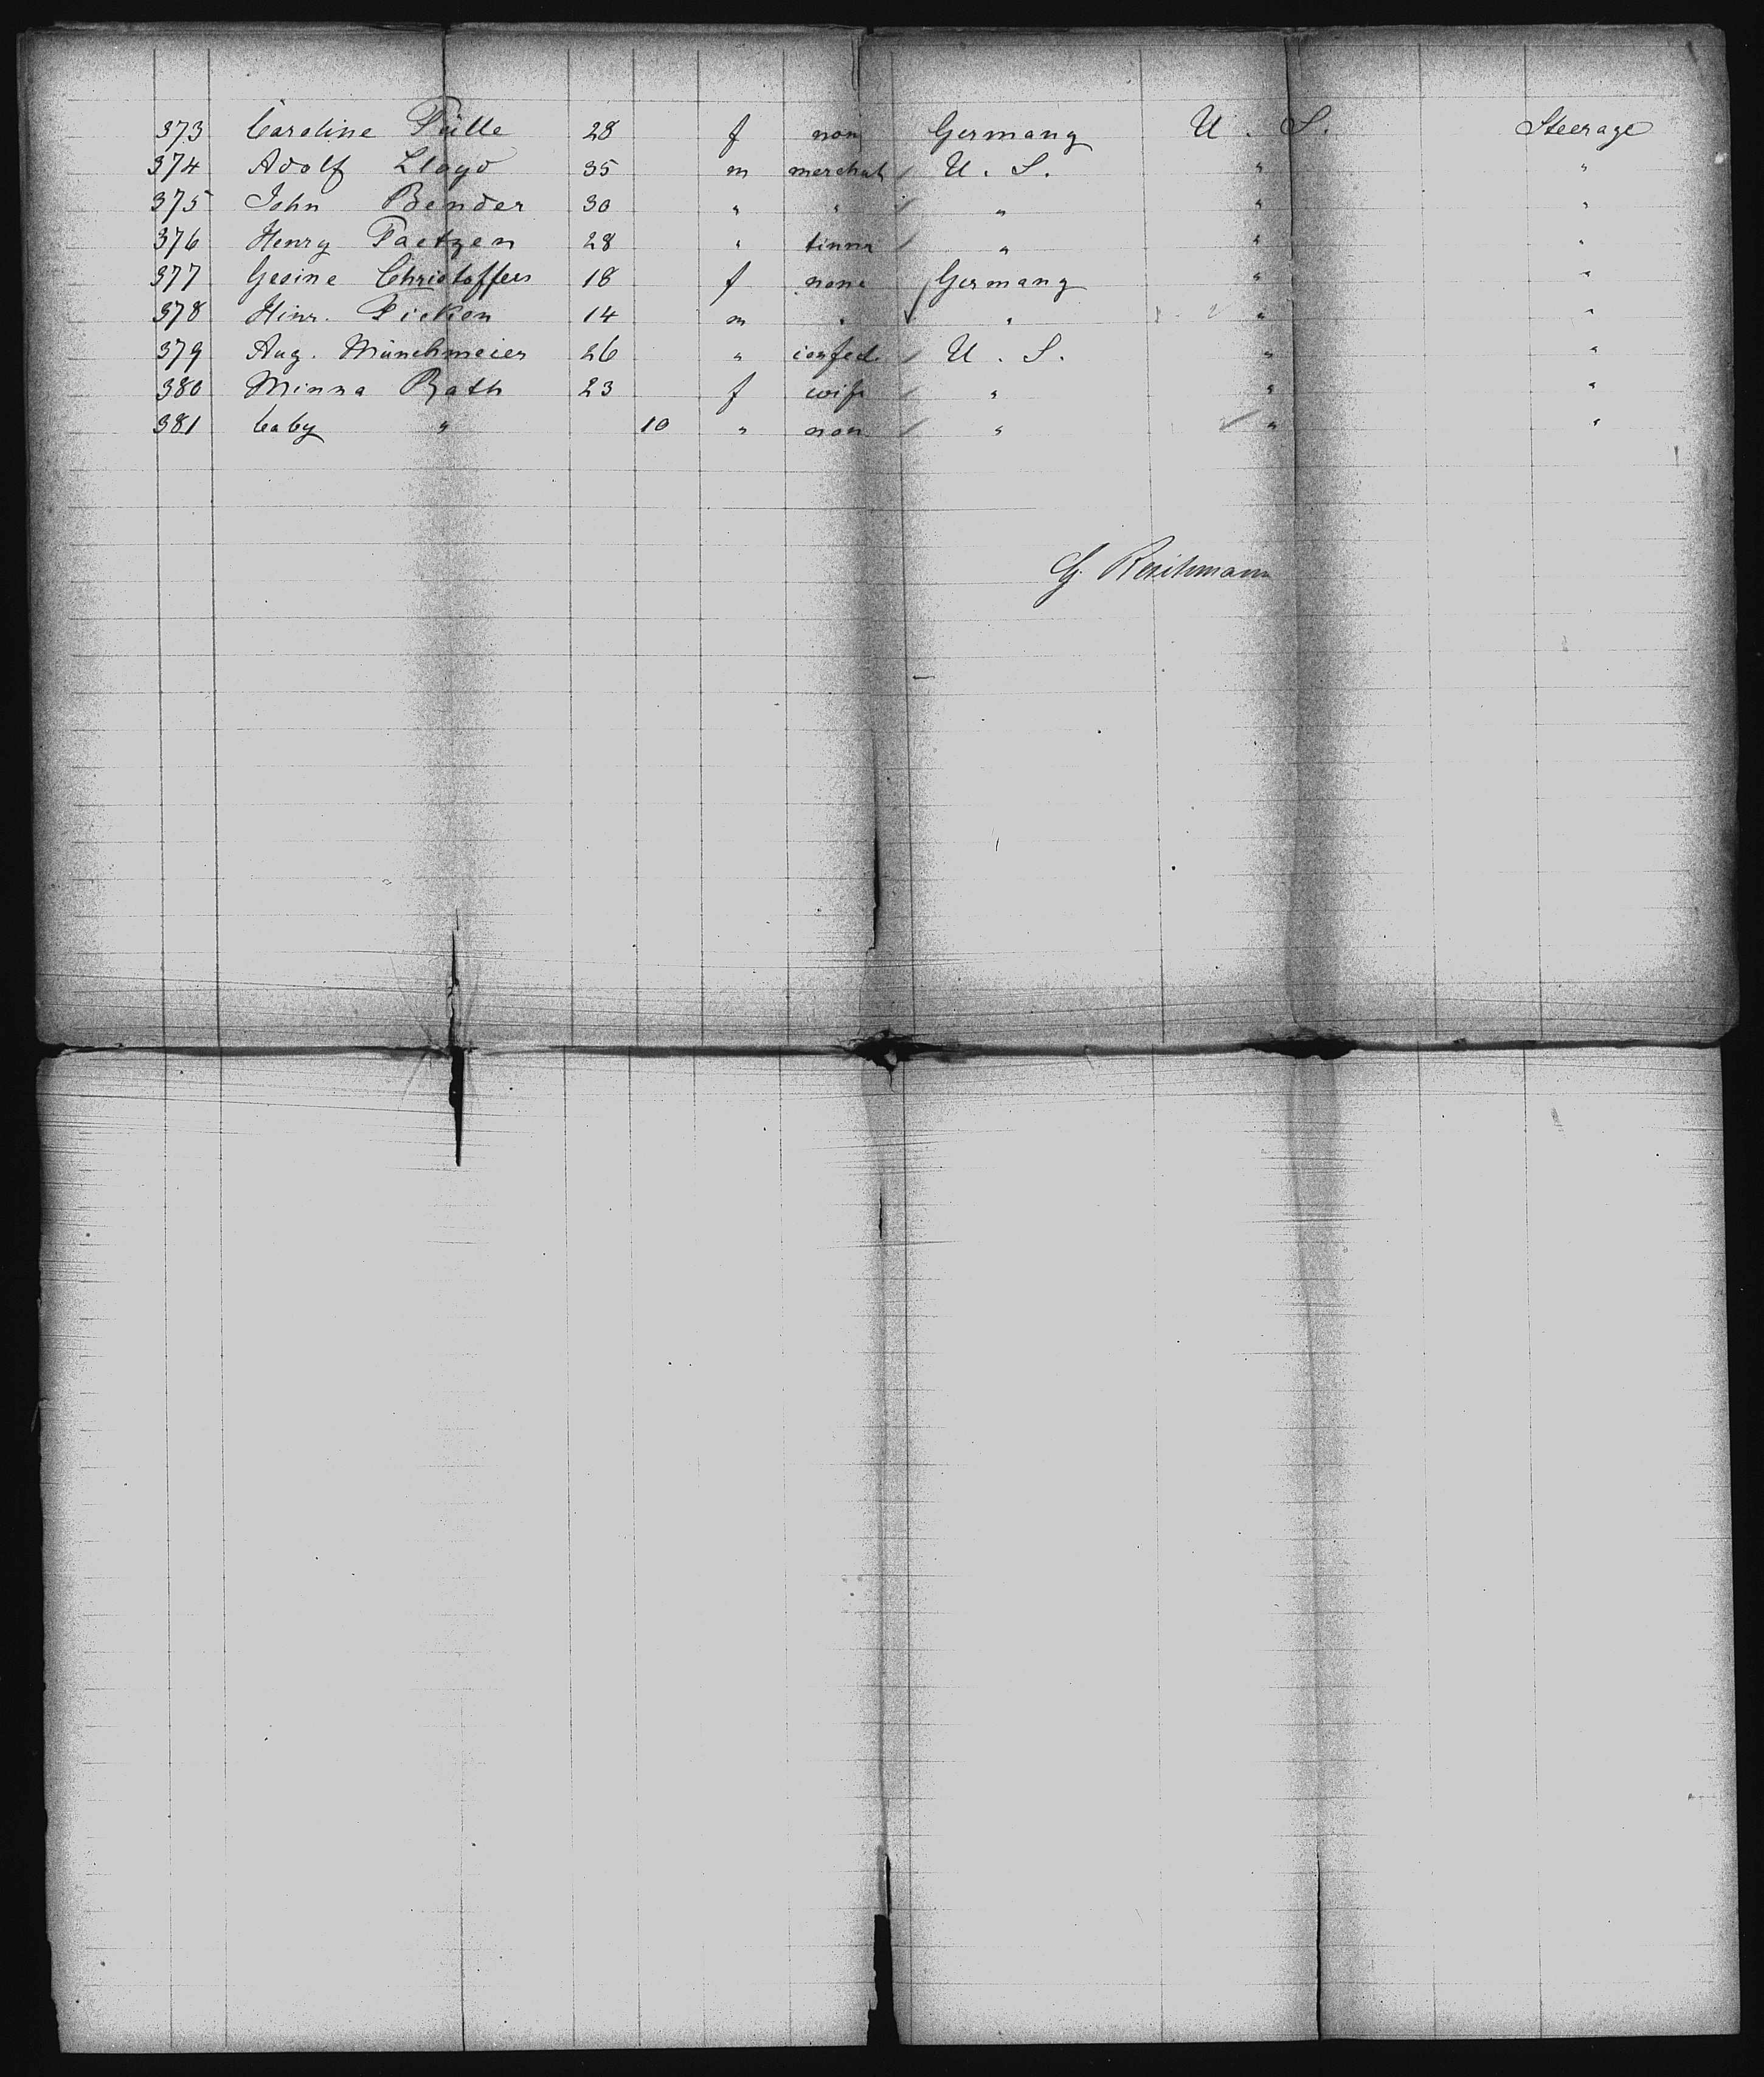 373 Caroline Tülle 28 f non Germany U. S. Steerage
374 Adolf Lloyd 35 m merchat U. S. " "
375 John Bender 30 " " " " "
376 Henry Paetzen 28 " tinnr " " "
377 Gesine Christoffers 18 f none Germany " "
378 Hinr. Picken 14 m " " " "
379 Aug. Münchmeier 26 " confect. U. S. " "
380 Minna Rath 23 f wife " " "
381 baby " 10 " non " " "
G. Reichmann